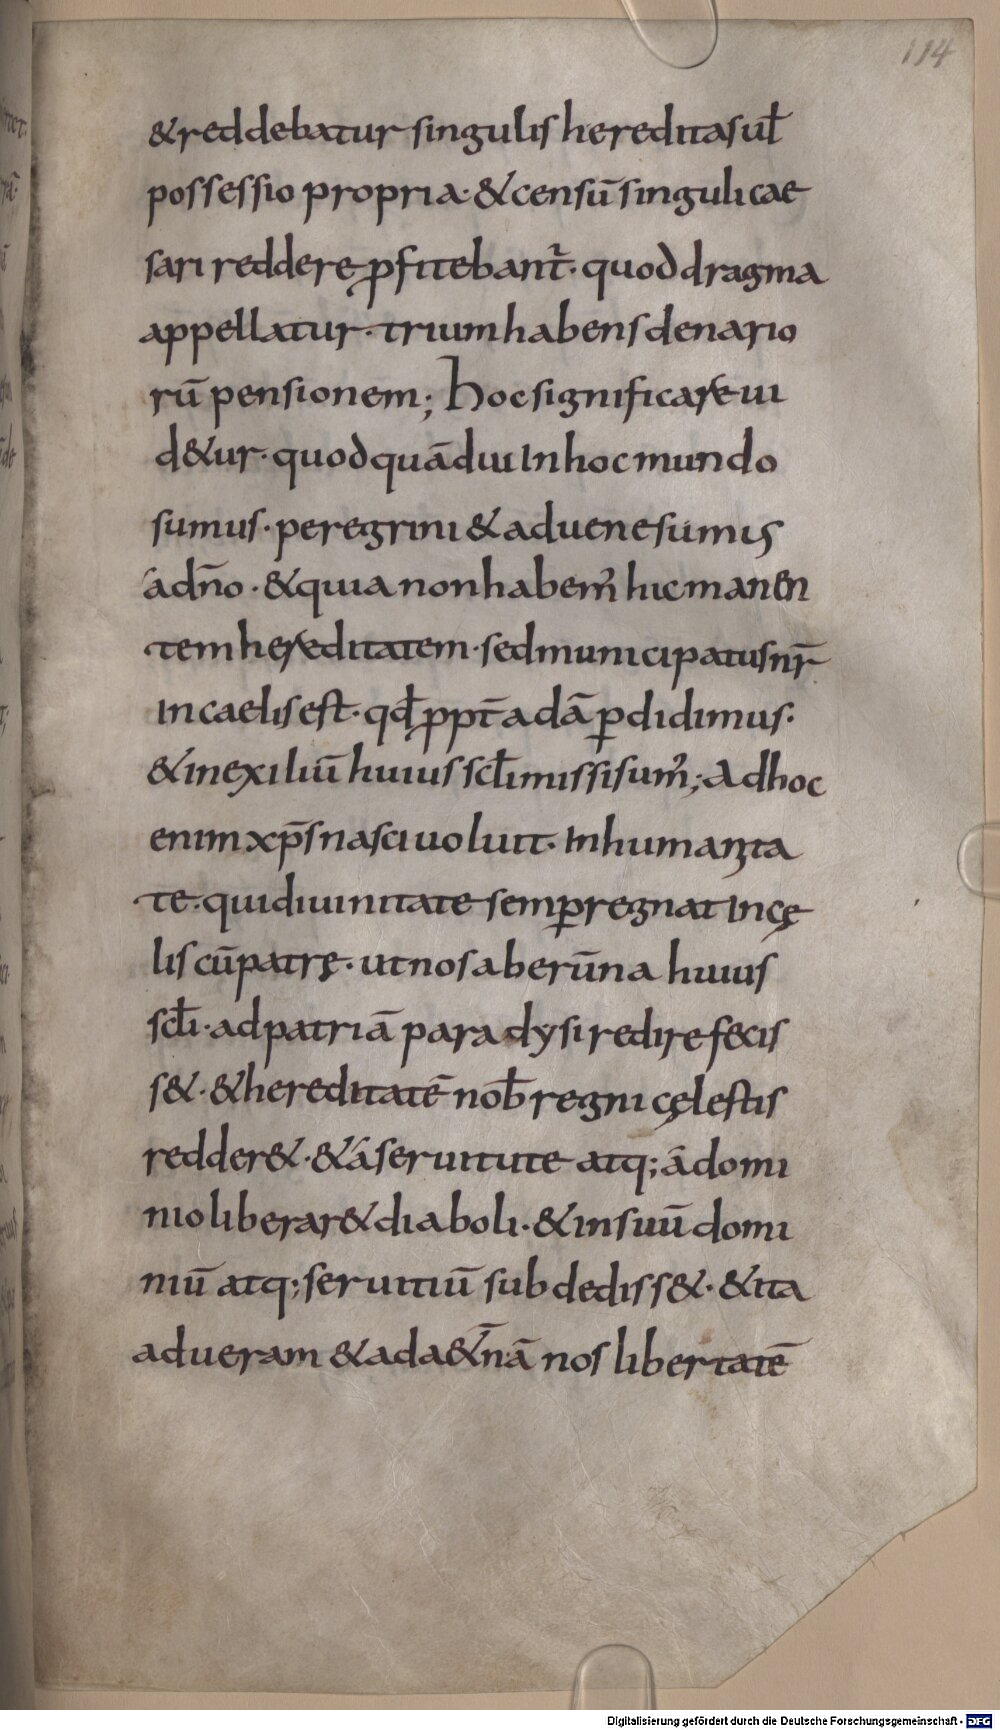 114
& reddebatur singulis hereditas ul̄
possessio propria· & censū singuli cae
sari reddere ꝓfitebant᷑· quod dragma
appellatur· trium habens denario
rū pensionem; Hoc significare ui
d&ur· quod quādiu In hoc mundo
sumus· peregrini & aduene sumus
ad dn̄o· & quia non habem᷒ hic manen
tem hereditatem· sed municipatus nr̄
In caelis est· qđ ꝓpt̄ adā ꝑdidimus·
& in exiliū huius scłi missi sum᷒; Ad hoc
enim xp̄s nasci uoluit· In humanita
te· qui diuinitate semꝑ regnat In cę
lis cū patrę· ut nos ab erūna huius
scłi· ad patriā paradysi redire fecis
s&· & hereditatē nob̄ regni cęlestis
redder&· & á seruitute atq; á domi
nio liberar& diaboli· & in suū domi
niū atq; seruitiū subdediss&· & ita
ad ueram & ad a&̄nā nos libertatē
Digitalisierung gefördert durch die Deutsche Forschungsgemeinschaft - DFG